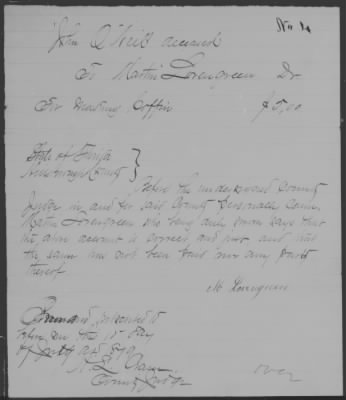 No 10
John O'Neil deceased
To Martin Lovengreen Dr
For making Coffin $5.00
State of Florida
County }
Before the undersigned County
Judge in and for said County personally came
Martin Lovengreen who being duly sworn says that
the above account is correct and just and that
the same has not been paid nor any part
thereof
M Lovengreen
presented to
on the 15 day
of July AD 1879
County Judge
over